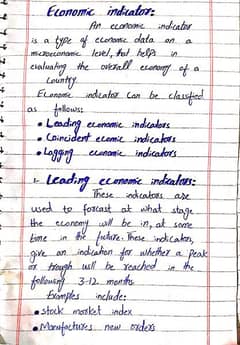 Economic indicator:
An economic indicator
is a type of economic data on a
microeconomic level, that helps in
evaluating the overall economy of a
country.
Economic indicator can be classfied
as follows:
• Leading economic indicators
• Coincident ecomic indicators
• Lagging economic indicators
1. Leading economic indicators:
These indicators are
used to forcast at what stage
the economy will be in, at some
time in the future. These indicators,
give an indication for whether a peak
or trough will be reached in the
following 3-12 months
Examples include:
• stock market index
• Manufactures new orders